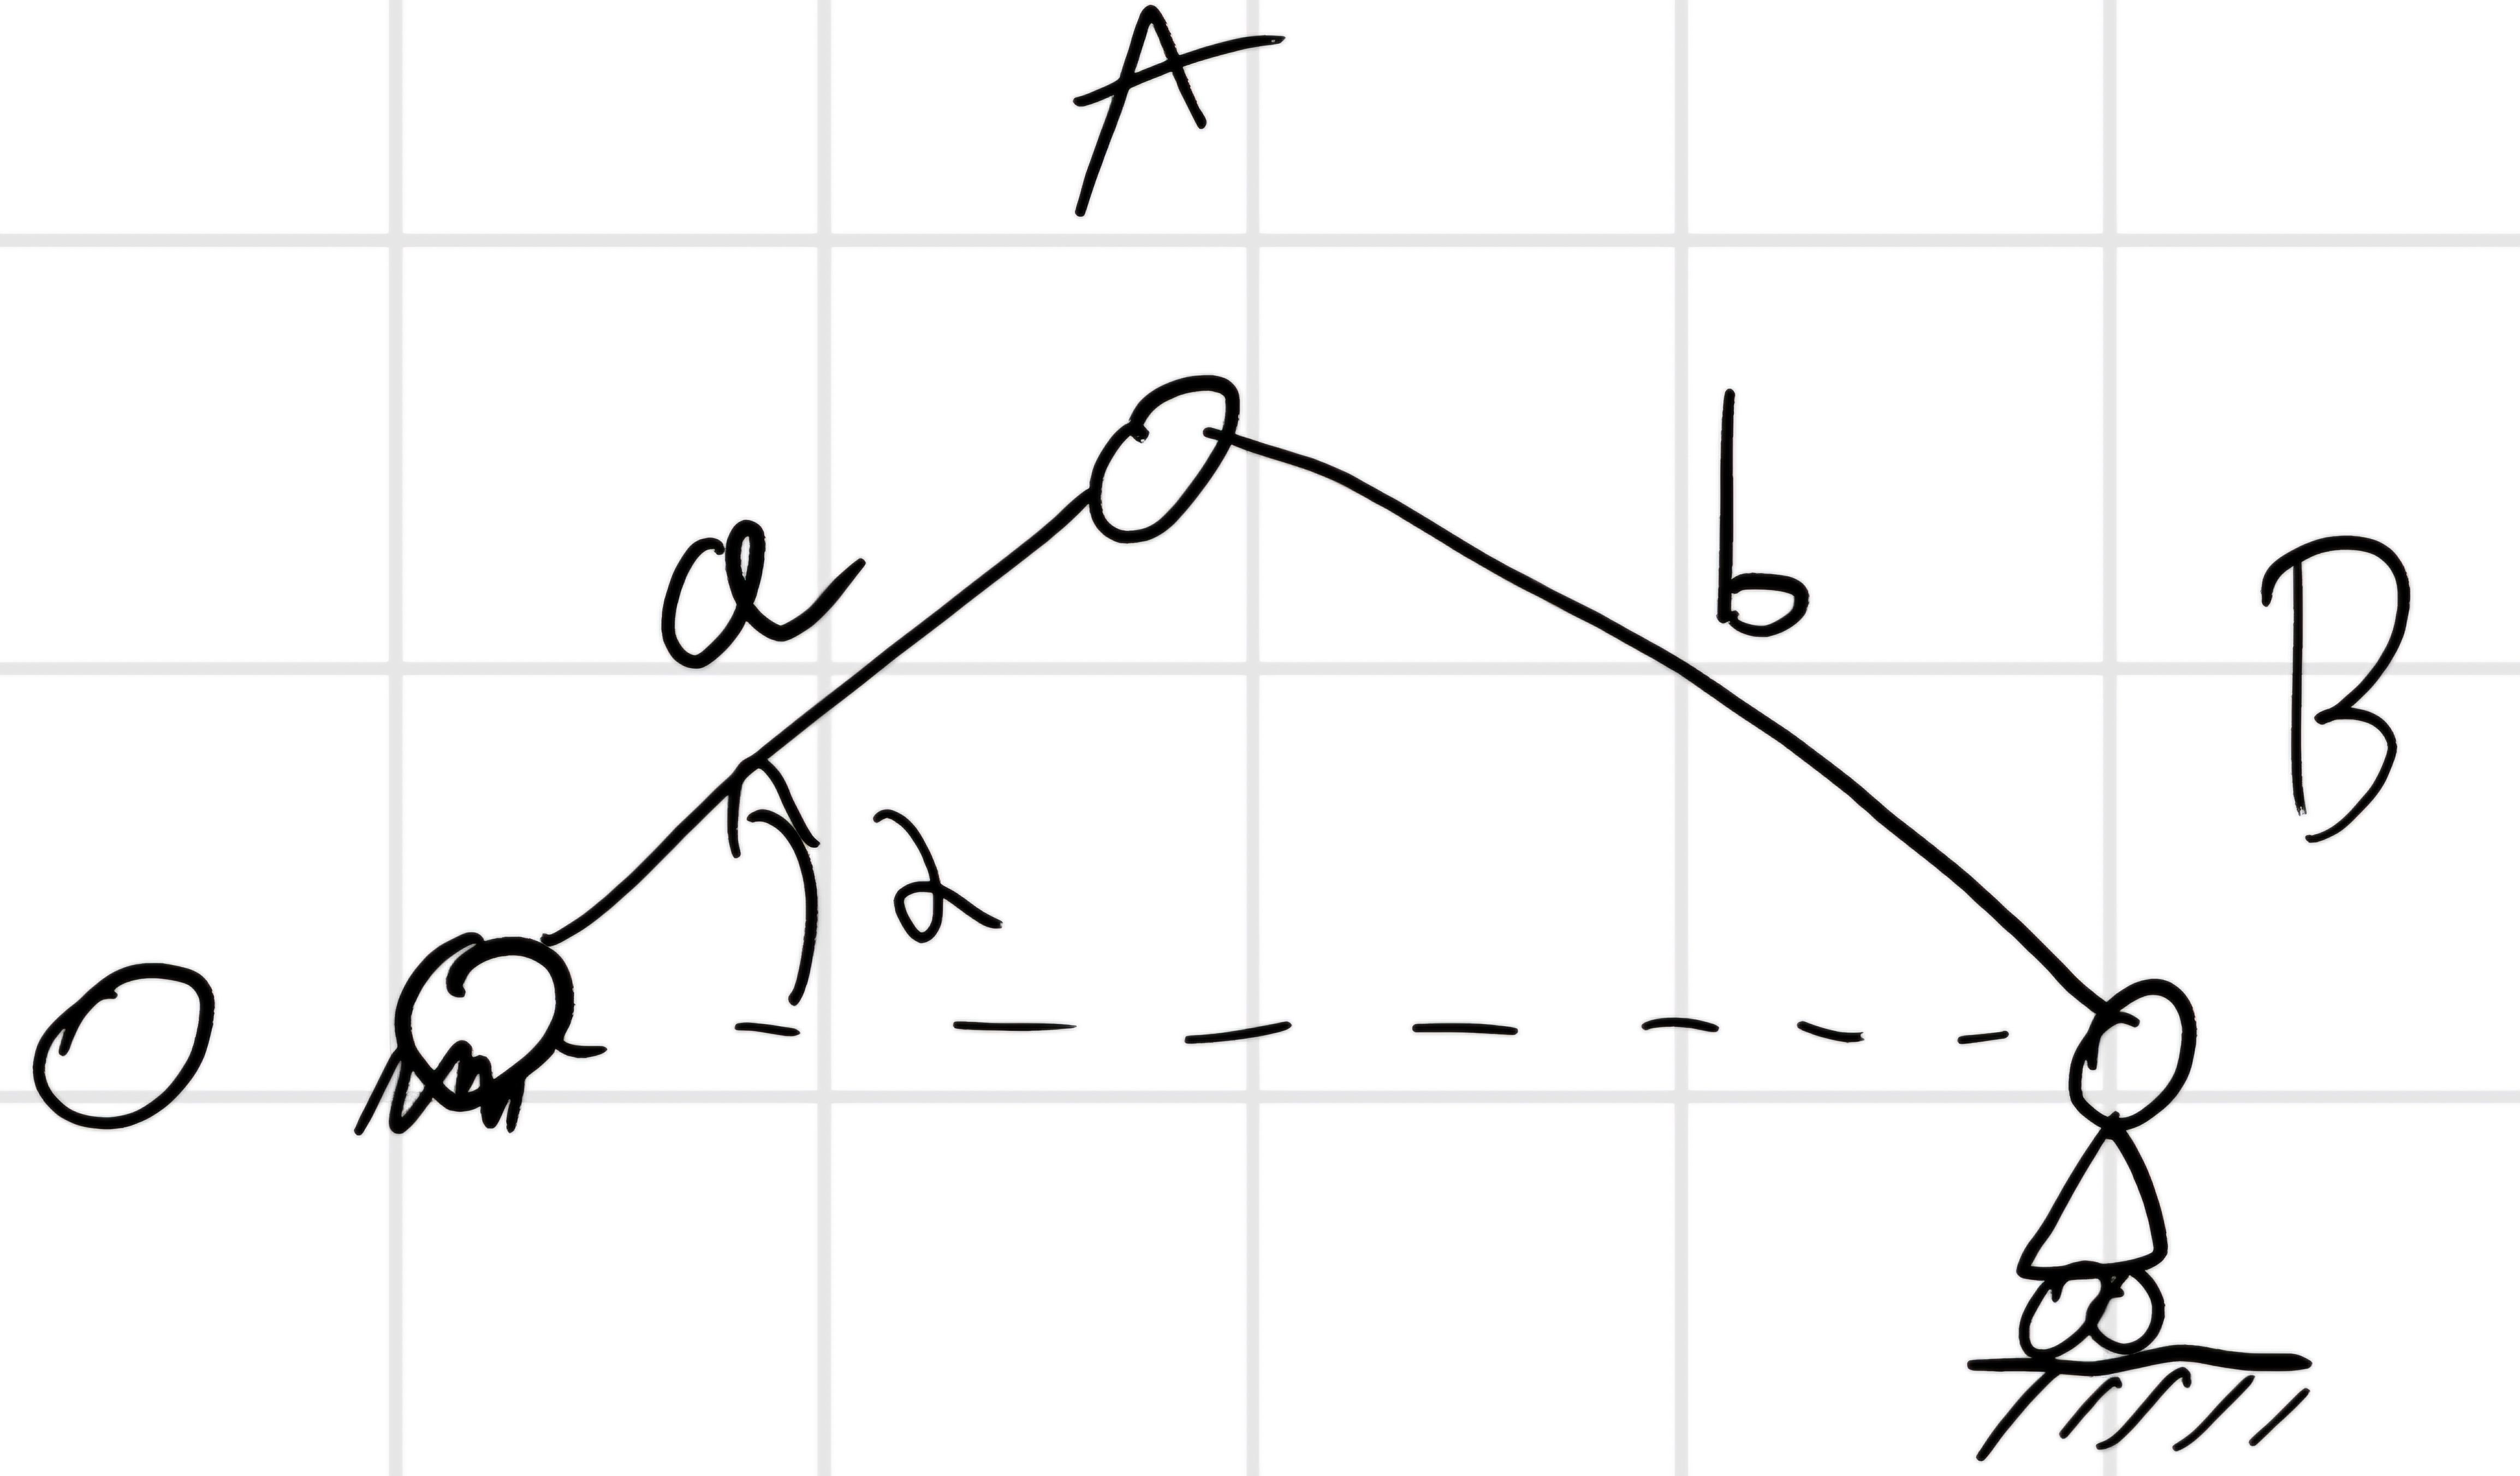 A
a
b
B
O